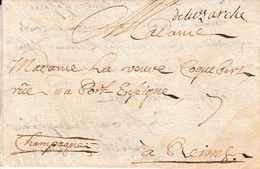 deluzarche
Madame
Madame La veuve Coquebert
rue du Port Enseigne
7
Champagne
a Reims